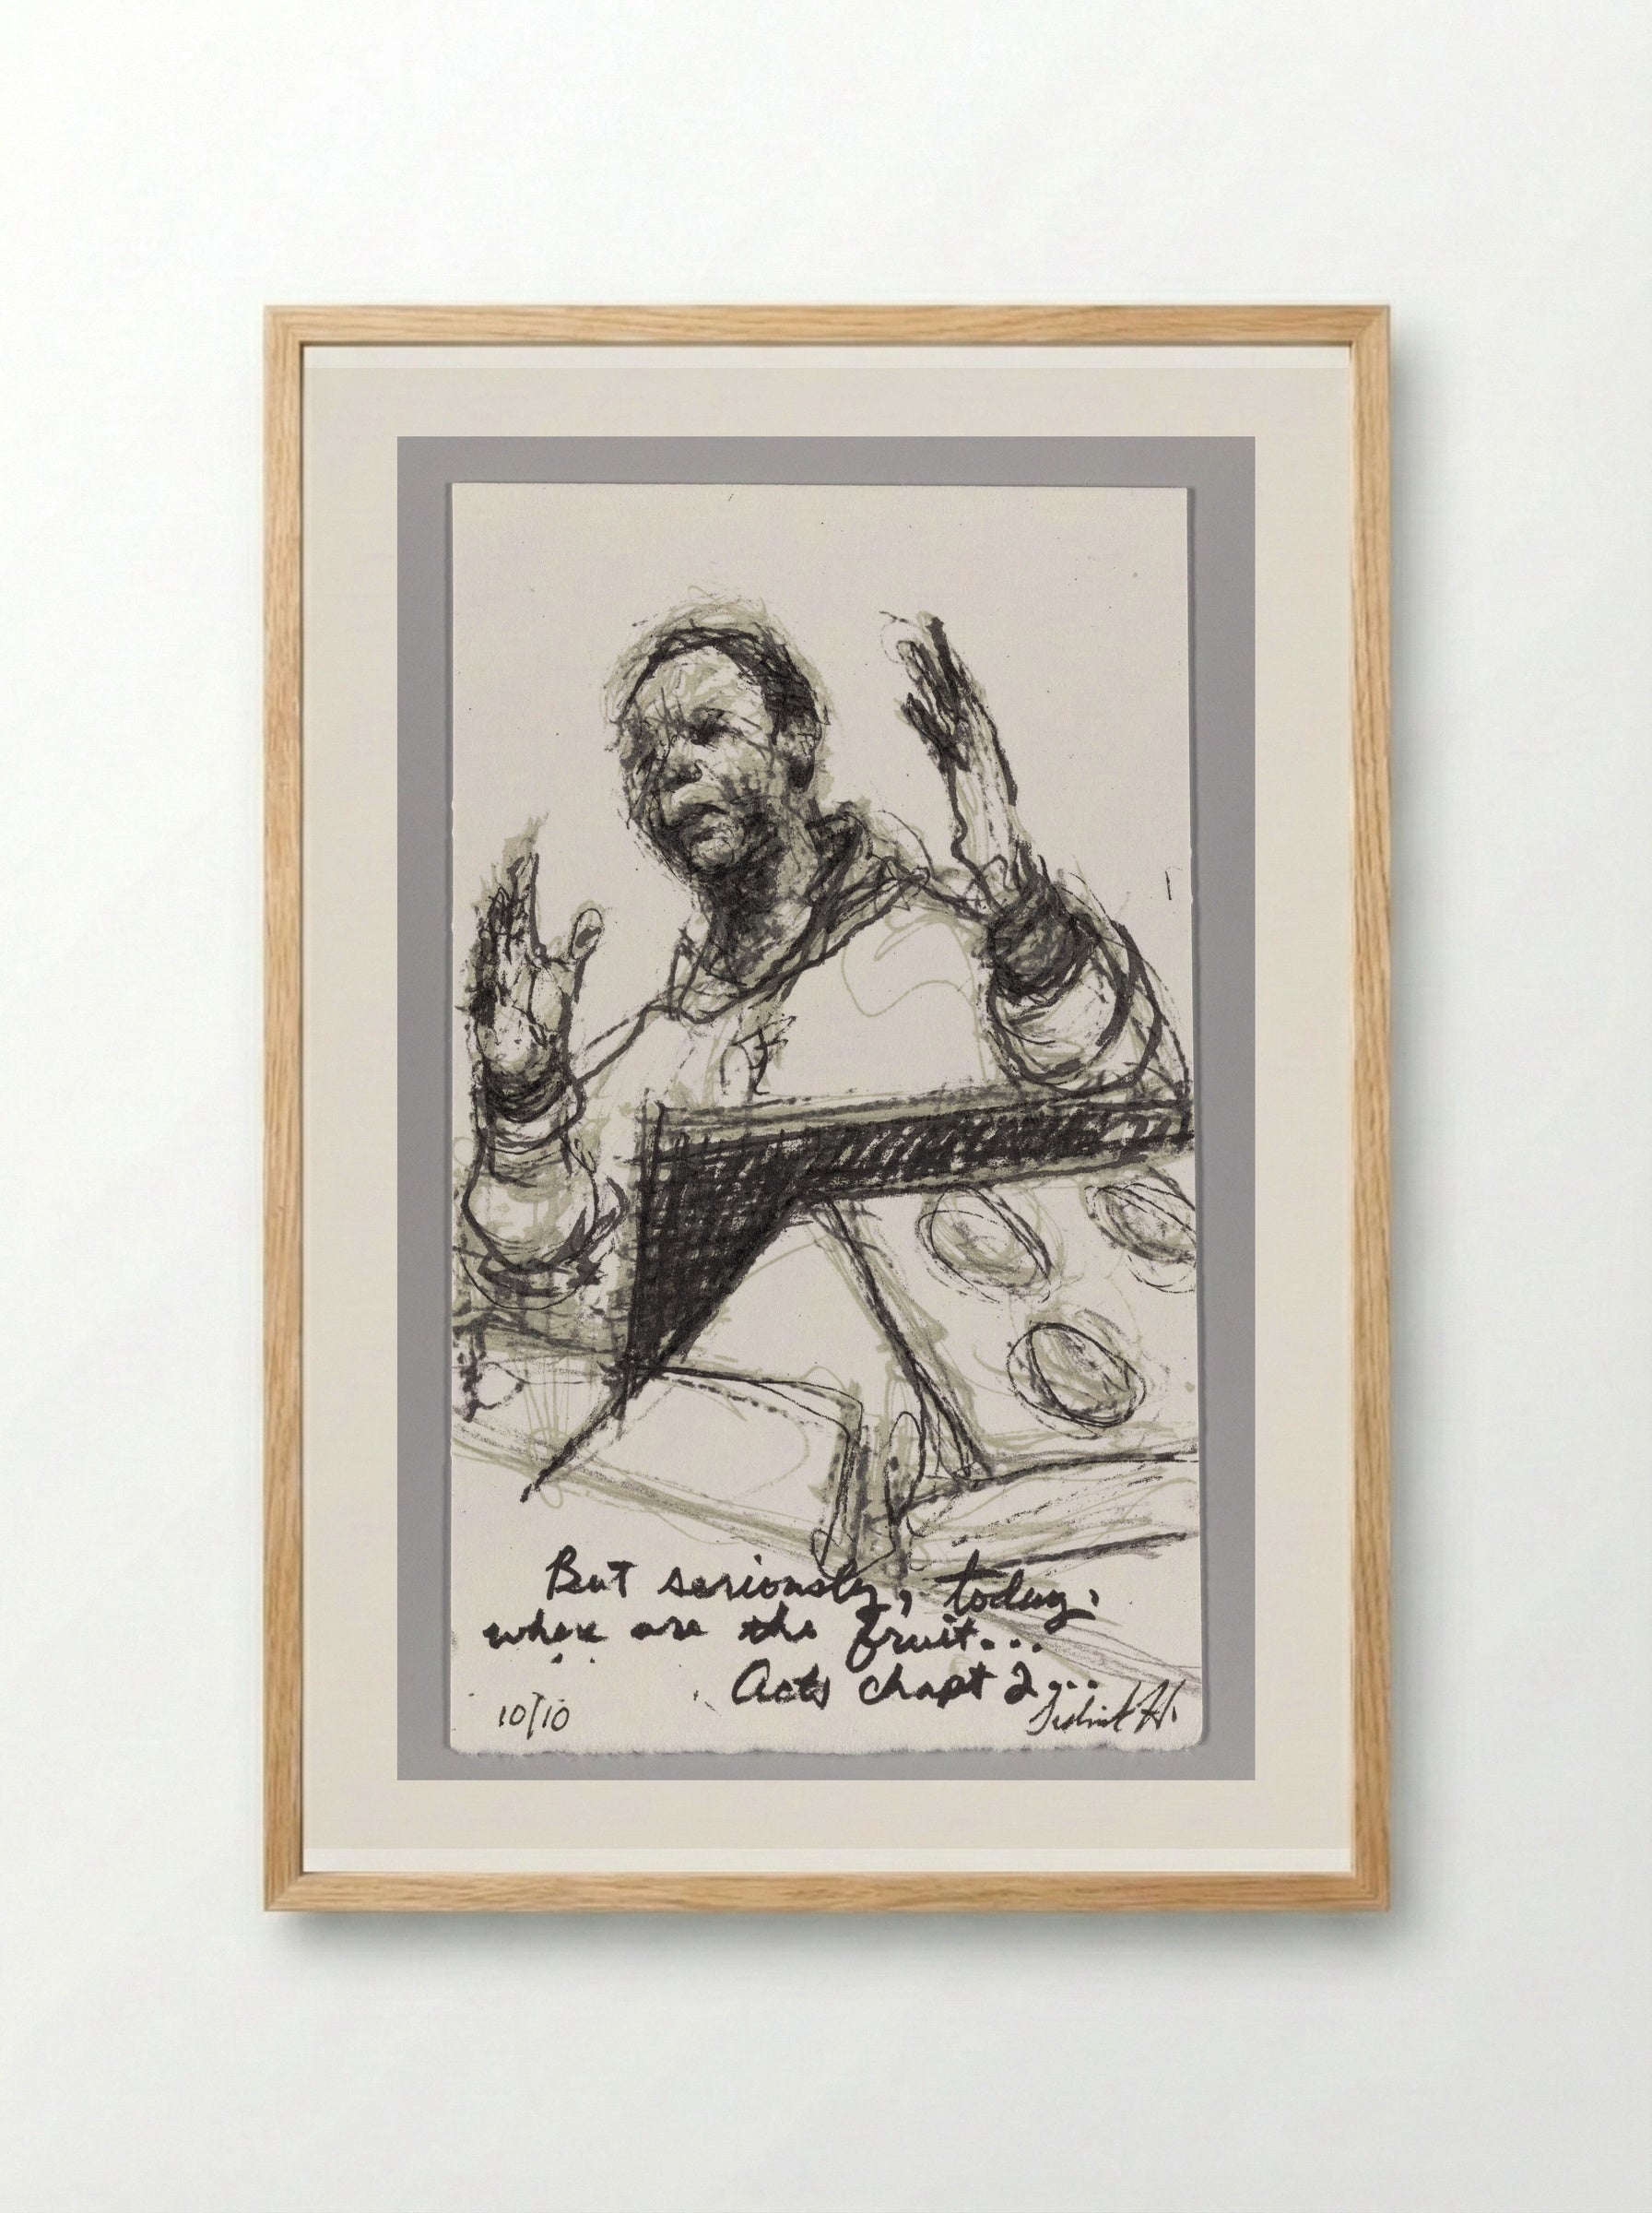 But seriously, today,
where are the fruit...
Acts chapt 2...
10/10